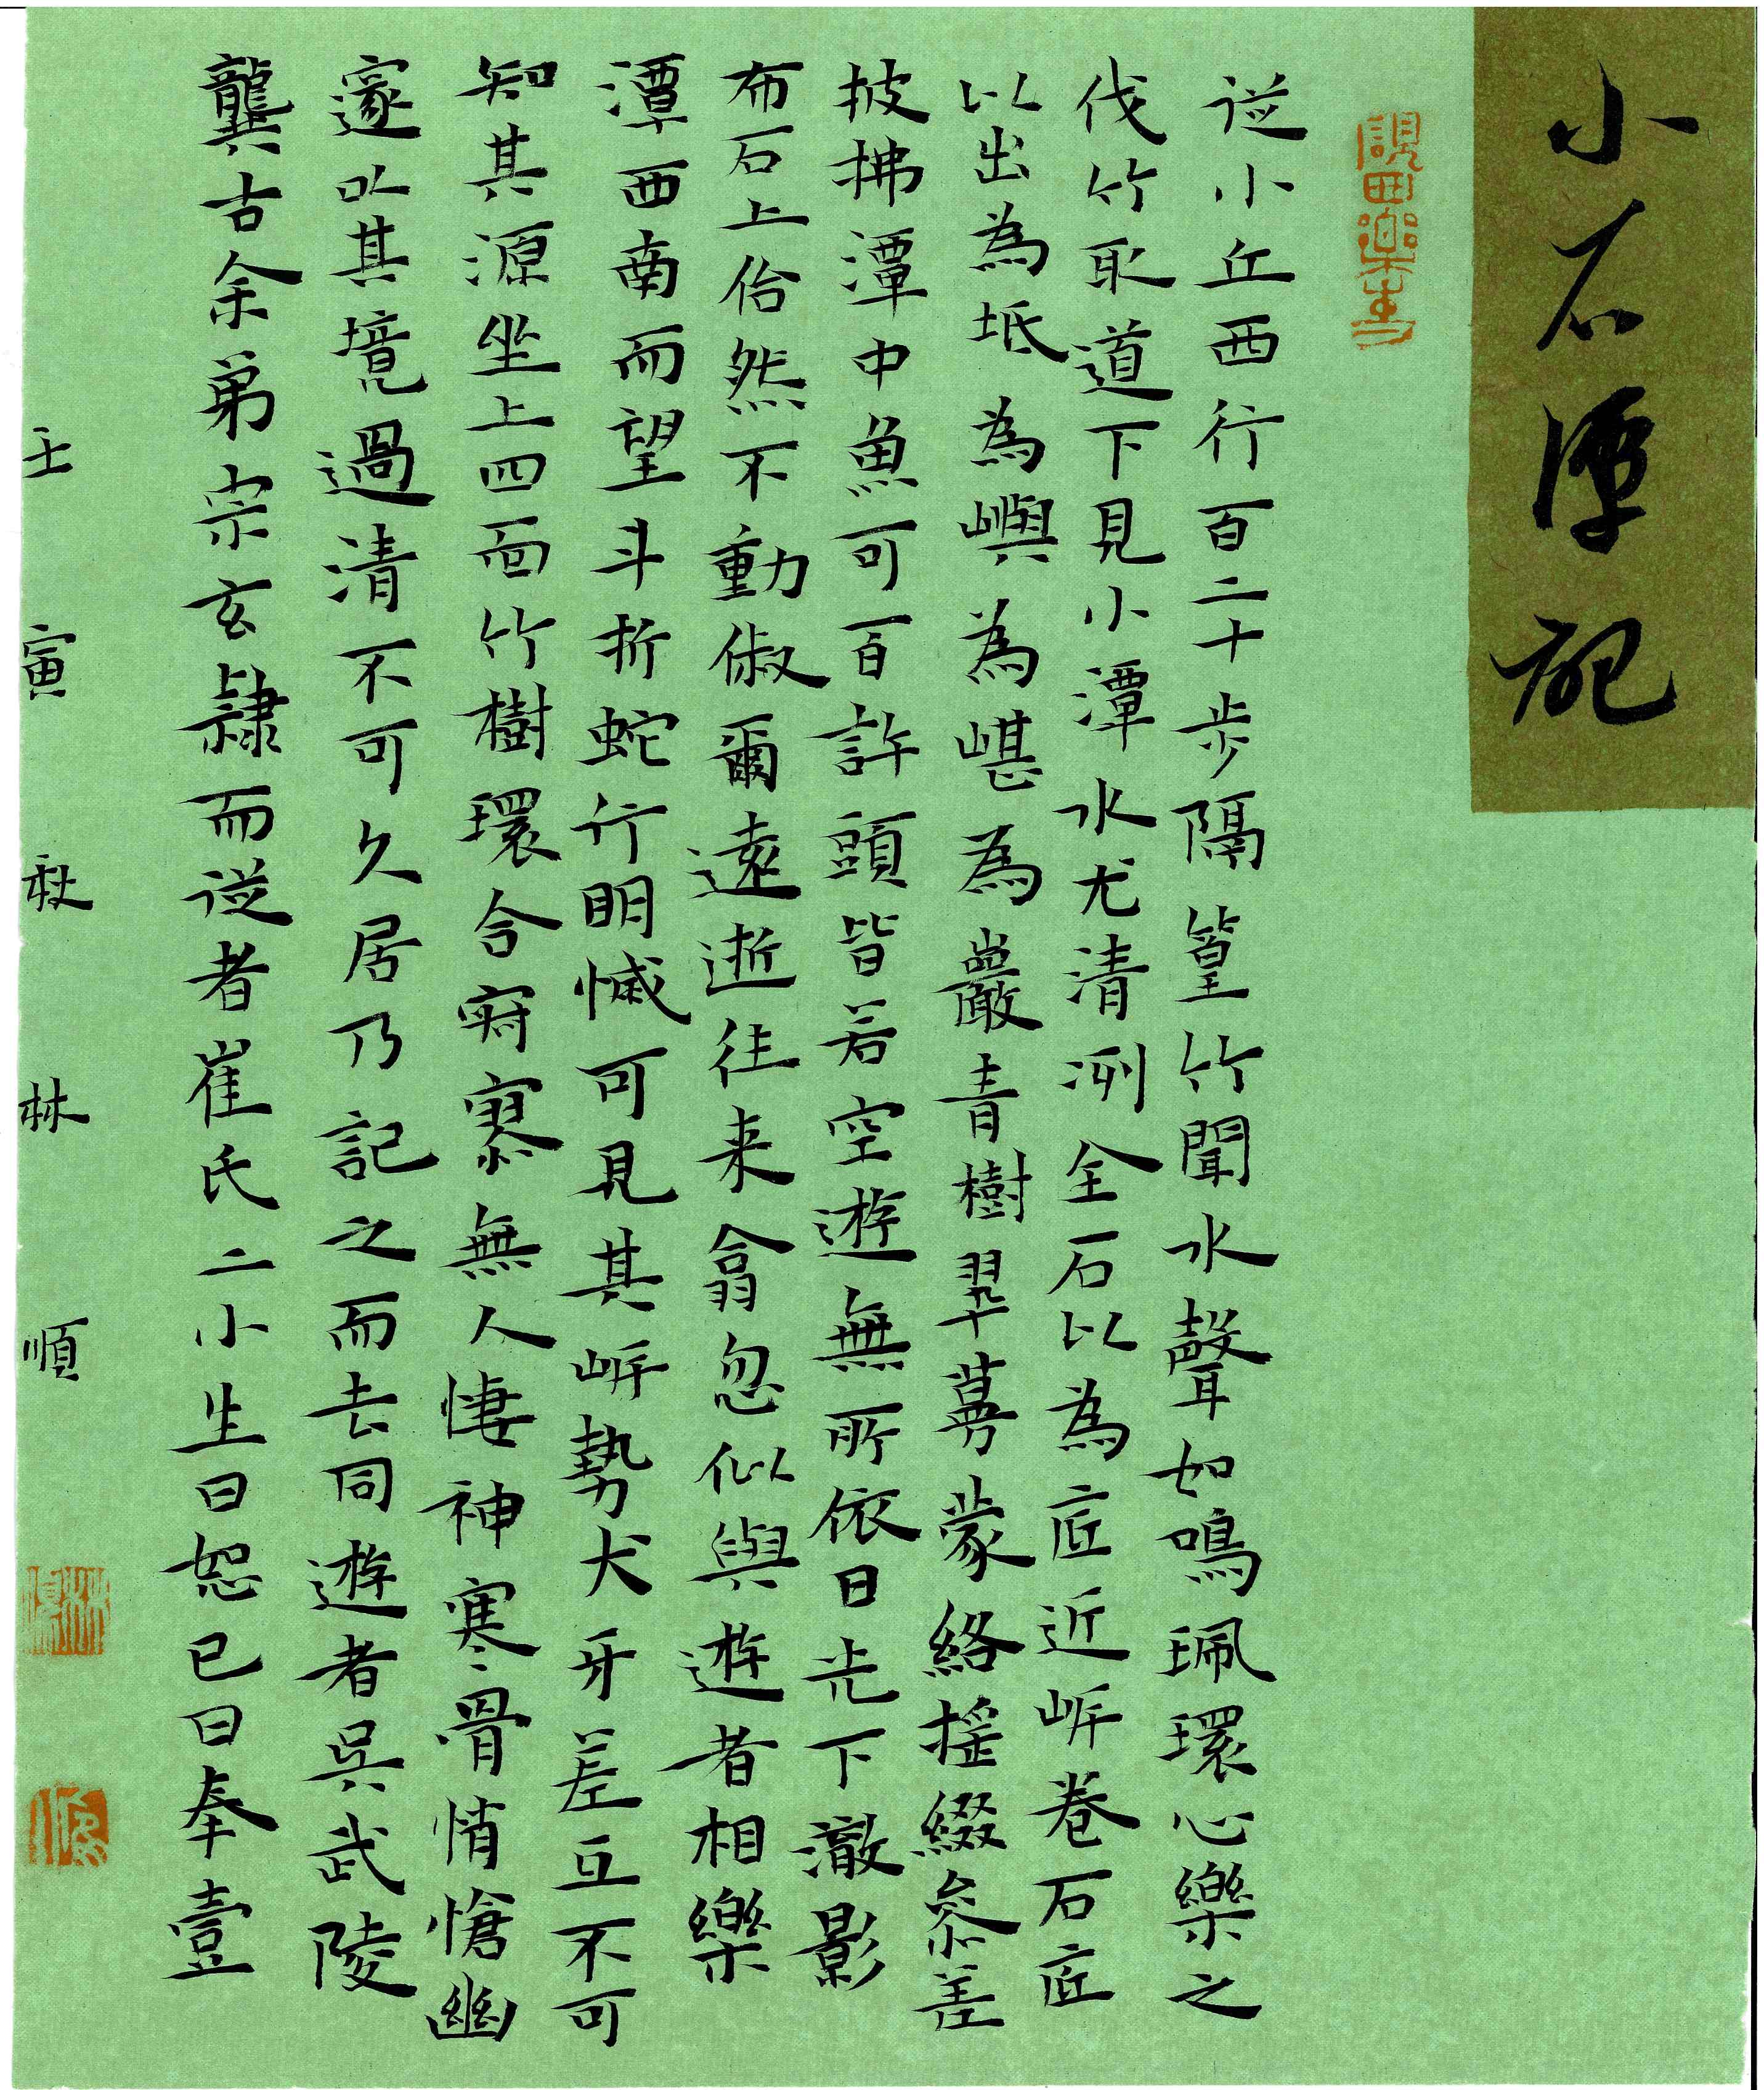 小石潭記
從小丘西行百二十步隔篁竹聞水聲如鳴珮環心樂之
伐竹取道下見小潭水尤清洌全石以為底近岸卷石底
以出為坻為嶼為嵁為巖青樹翠蔓蒙絡搖綴參差
披拂潭中魚可百許頭皆若空遊無所依日光下澈影
布石上佁然不動俶爾遠逝往来翕忽似與遊者相樂
潭西南而望斗折蛇行明滅可見其岸勢犬牙差互不可
知其源坐上四面竹樹環合寂寥無人悽神寒骨悄愴幽
邃以其境過清不可久居乃記之而去同遊者吳武陵
龔古余弟宗玄隸而從者崔氏二小生曰恕己曰奉壹
壬寅秋林順